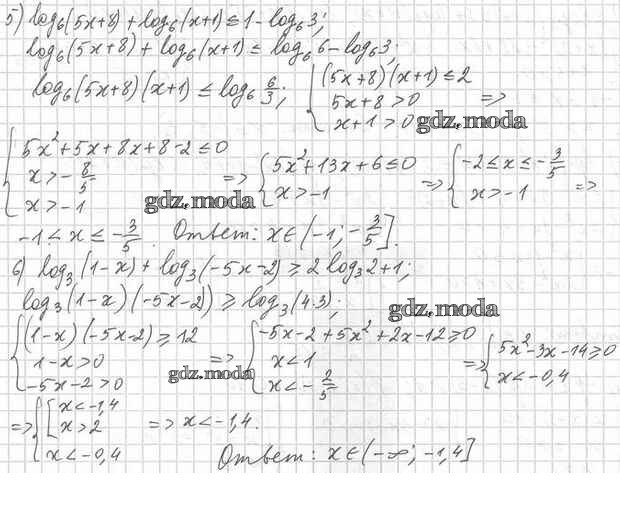 5) log₆(5x+8) + log₆(x+1) ≤ 1 - log₆3;
log₆(5x+8) + log₆(x+1) ≤ log₆6 - log₆3;
log₆(5x+8)(x+1) ≤ log₆ 6/3; { (5x+8)(x+1) ≤ 2
5x+8 > 0 =>
x+1 > 0 gdz.moda
{ 5x²+5x+8x+8-2 ≤ 0
x > -8/5
x > -1
=> { 5x²+13x+6 ≤ 0
x > -1
=> { -2 ≤ x ≤ -3/5
x > -1 =>
gdz.moda
-1 < x ≤ -3/5. Ответ: x∈(-1; -3/5].
6) log₃(1-x) + log₃(-5x-2) ≥ 2log₃2+1;
log₃(1-x)(-5x-2)) ≥ log₃(4·3);
gdz.moda
{ (1-x)(-5x-2) ≥ 12
1-x > 0
-5x-2 > 0
=> { -5x-2+5x²+2x-12 ≥ 0
x < 1
x < -2/5
=> { 5x²-3x-14 ≥ 0
x < -0,4
gdz.moda
=> { [ x < -1,4
x > 2
x < -0,4
=> x < -1,4.
Ответ: x∈(-∞; -1,4]